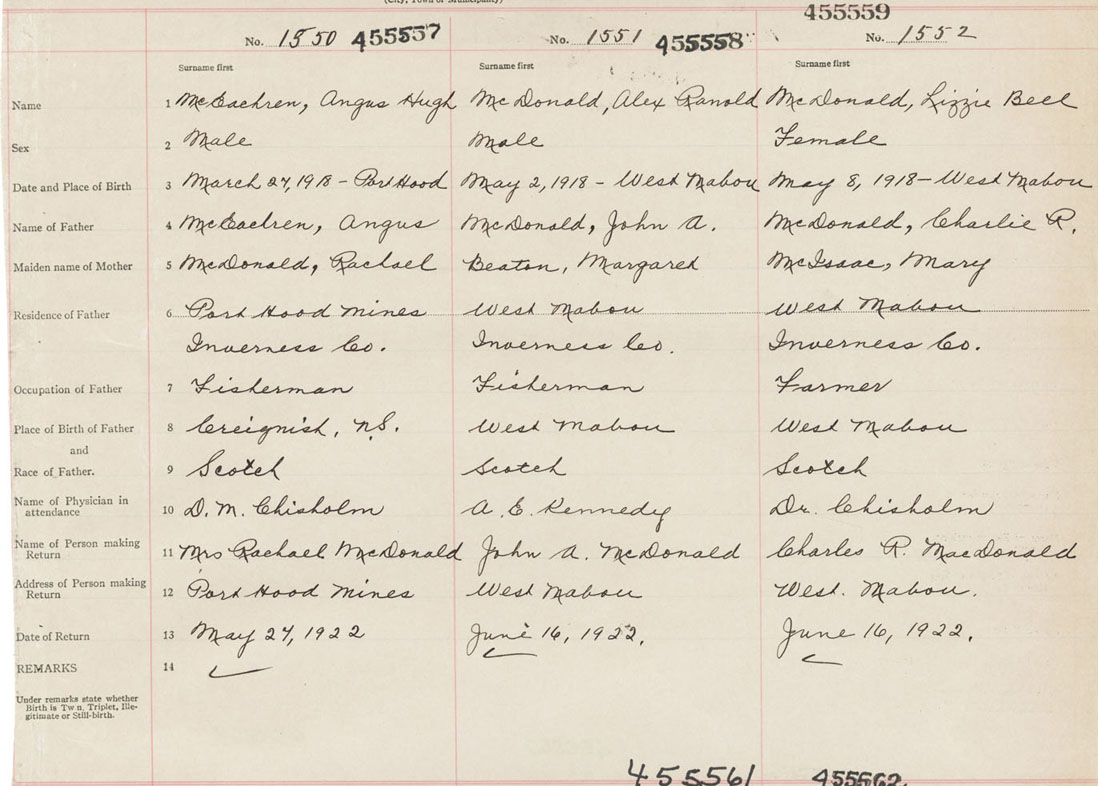 (City, Town or Municipality)
455559
No. 1550 455557 No. 1551 455558 No. 1552
Surname first Surname first Surname first
Name 1 McEachren, Angus Hugh McDonald, Alex Ranold McDonald, Lizzie Bell
Sex 2 Male Male Female
Date and Place of Birth 3 March 27, 1918 - Port Hood May 2, 1918 - West Mabou May 8, 1918 - West Mabou
Name of Father 4 McEachren, Angus McDonald, John A. McDonald, Charlie R.
Maiden name of Mother 5 McDonald, Rachael Beaton, Margaret McIsaac, Mary
Residence of Father 6 Port Hood Mines West Mabou West Mabou
Inverness Co. Inverness Co. Inverness Co.
Occupation of Father 7 Fisherman Fisherman Farmer
Place of Birth of Father 8 Creignish, N.S. West Mabou West Mabou
and
Race of Father. 9 Scotch Scotch Scotch
Name of Physician in
attendance 10 D. M. Chisholm A. E. Kennedy Dr. Chisholm
Name of Person making
Return 11 Mrs Rachael McDonald John A. McDonald Charles R. MacDonald
Address of Person making
Return 12 Port Hood Mines West Mabou West. Mabou.
Date of Return 13 May 27, 1922 June 16, 1922. June 16, 1922.
REMARKS 14
Under remarks state whether
Birth is Twn, Triplet, Ille-
gitimate or Still-birth.
455561 455562